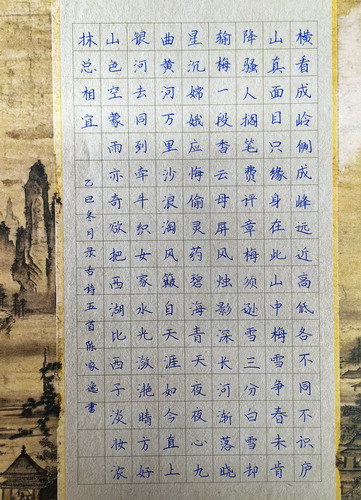 横看成岭侧成峰远近高低各不同不识庐
山真面目只缘身在此山中梅雪争春未肯
降骚人搁笔费评章梅须逊雪三分白雪却
输梅一段香云母屏风烛影深长河渐落晓
星沉嫦娥应悔偷灵药碧海青天夜夜心九
曲黄河万里沙浪淘风簸自天涯如今直上
银河去同到牵牛织女家水光潋滟晴方好
山色空蒙雨亦奇欲把西湖比西子淡妆浓
抹总相宜
乙巳冬月录古诗五首陈逸书